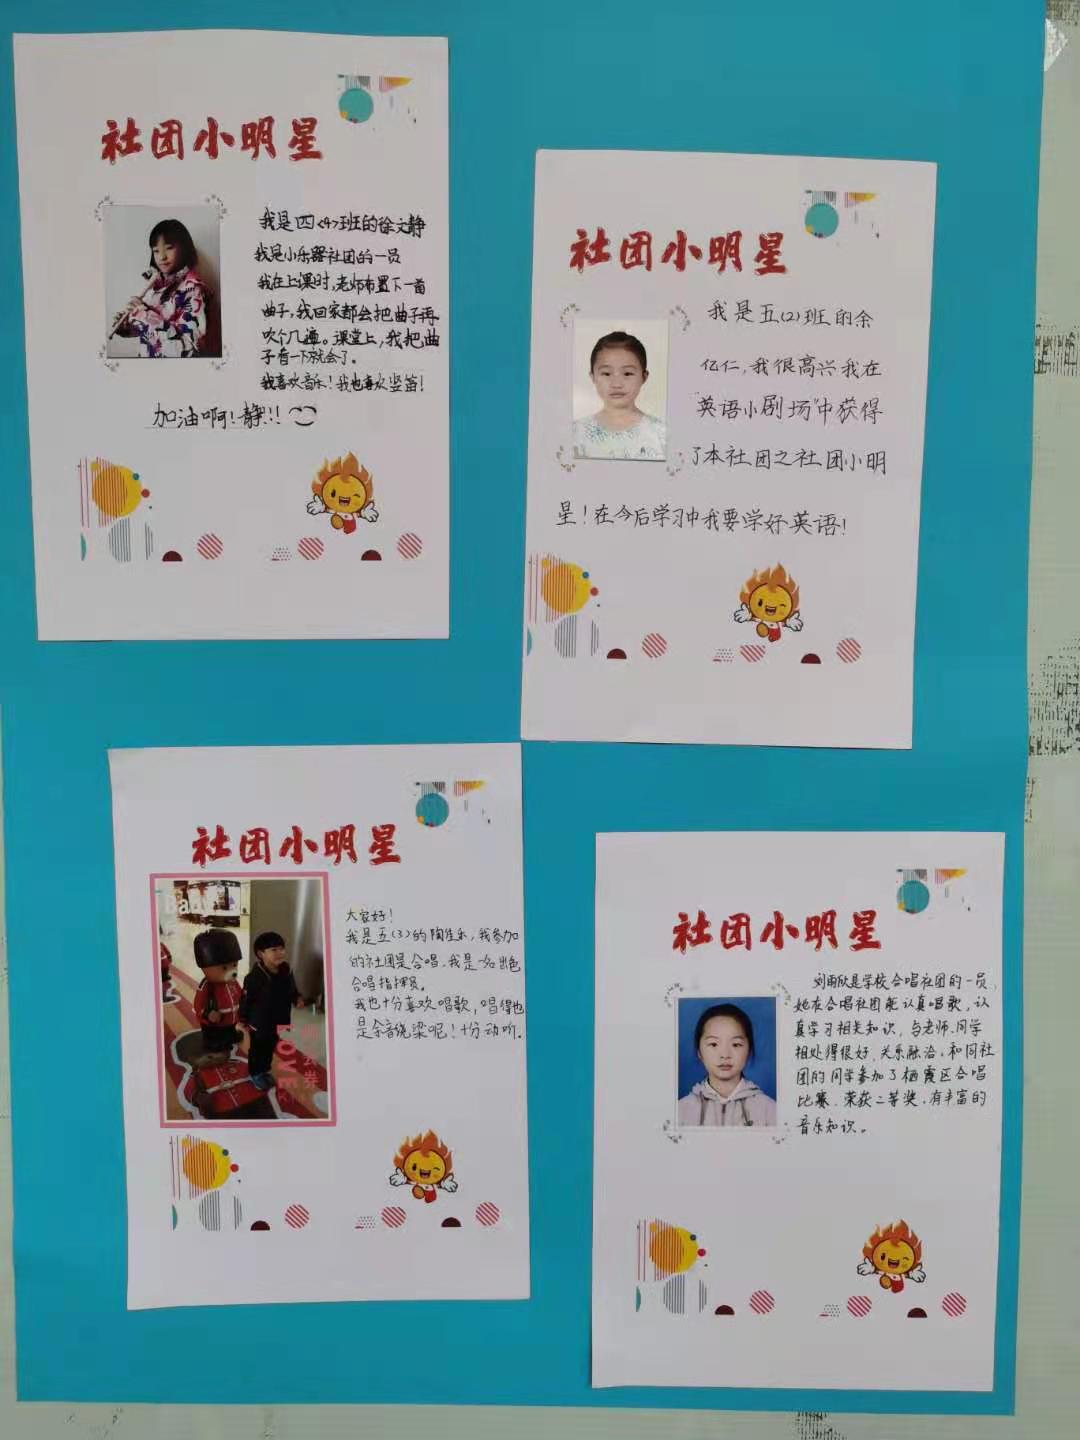 社团小明星
我是四<4>班的徐文静
我是小乐器社团的一员
我在上课时,老师布置下一首
曲子,我回家都会把曲子再
吹个几遍。课堂上,我把曲
子看一下就会了。
我喜欢音乐!我也喜欢竖笛!
加油啊!静!!!
社团小明星
我是五(2)班的余
亿仁,我很高兴我在
"英语小剧场"中获得
了本社团之社团小明
星!在今后学习中我要学好英语!
社团小明星
Baby
LOVE
大家好!
我是五(3)的陶佳乐,我参加
的社团是合唱,我是一名出色
合唱指挥员。
我也十分喜欢唱歌,唱得也
是余音绕梁呢!十分动听.
社团小明星
刘雨欣是学校合唱社团的一员,
她在合唱社团能认真唱歌,认
真学习相关知识,与老师、同学
相处得很好,关系融洽,和同社
团的同学参加了栖霞区合唱
比赛,荣获二等奖,有丰富的
音乐知识。